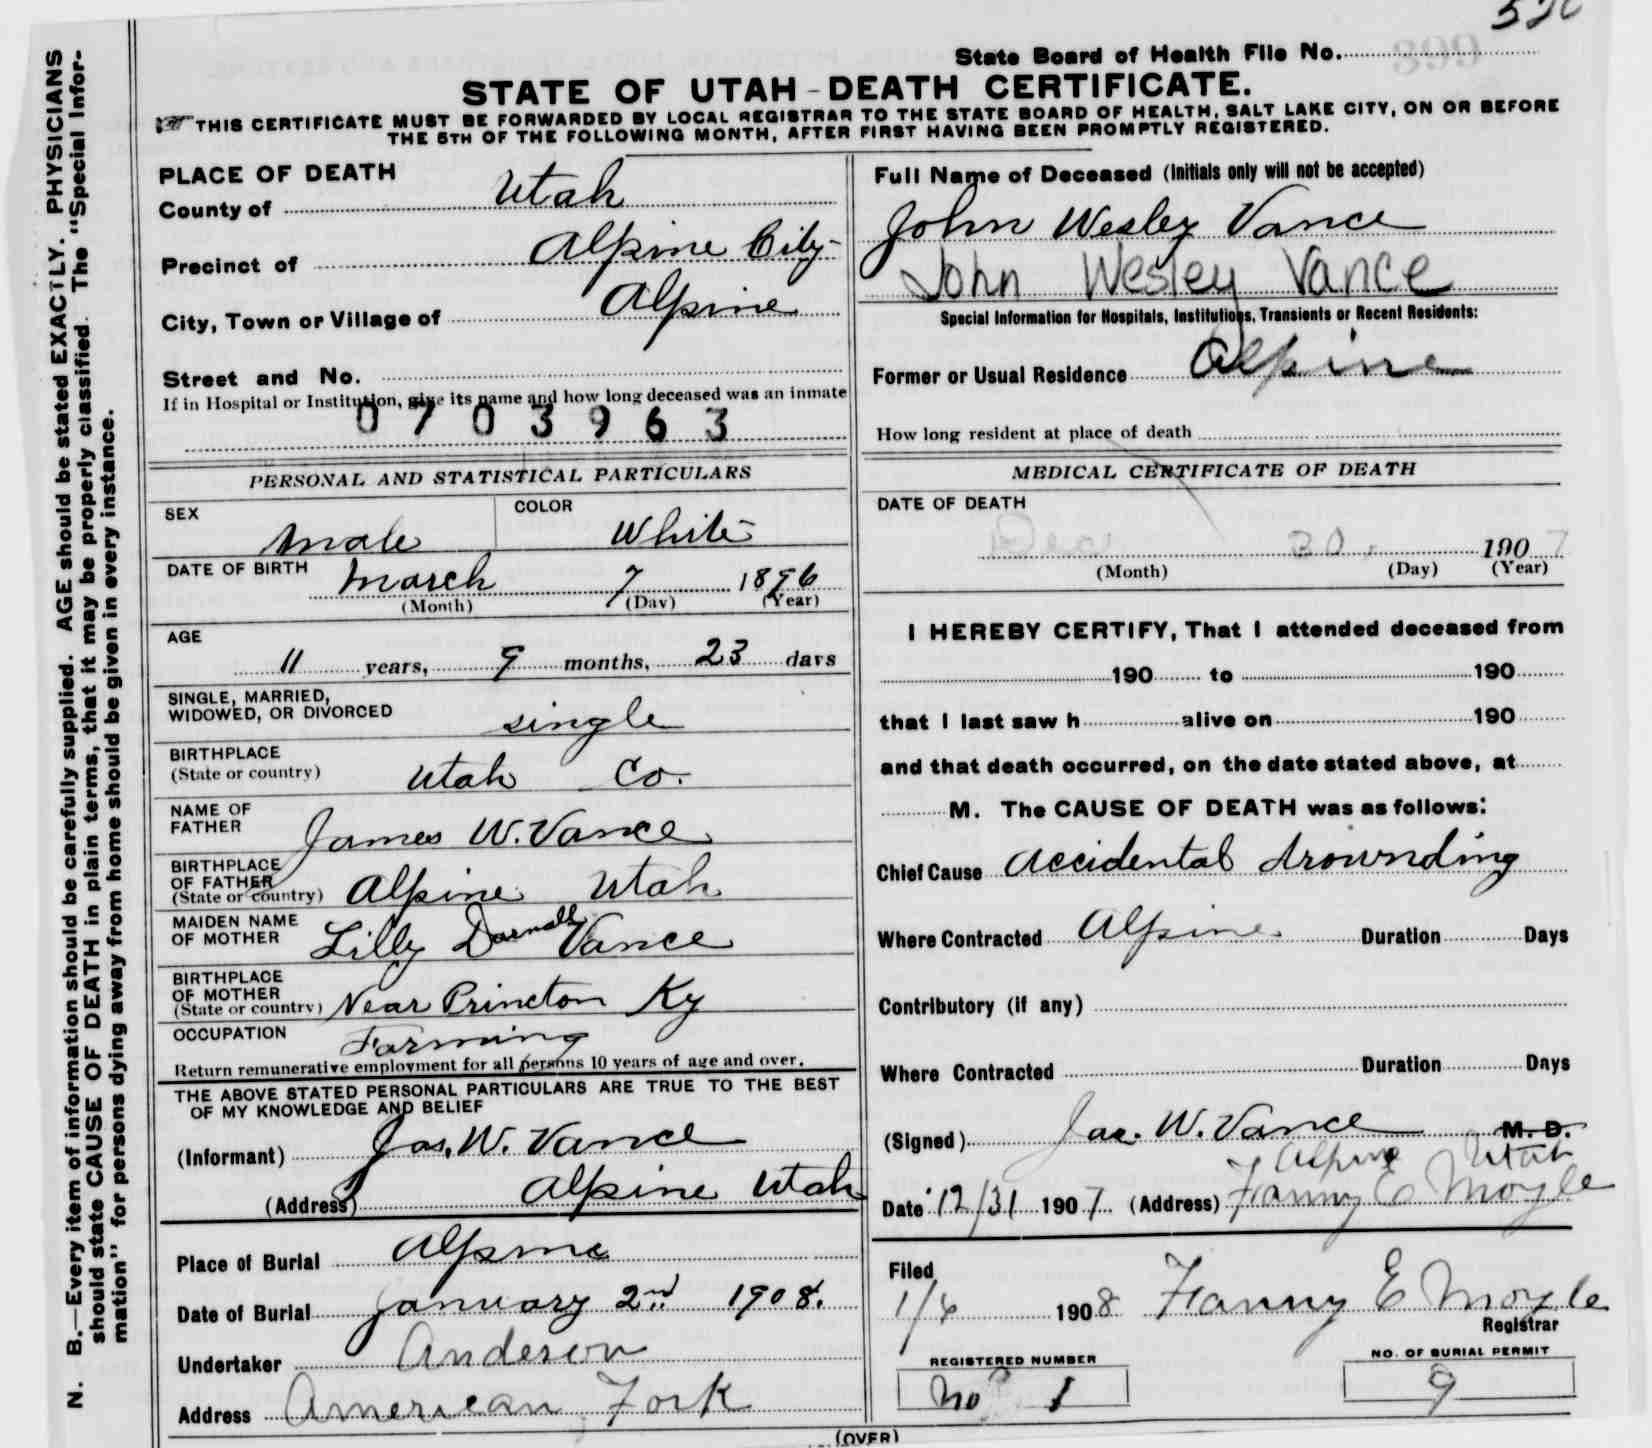 526
State Board of Health File No.
STATE OF UTAH-DEATH CERTIFICATE.
THIS CERTIFICATE MUST BE FORWARDED BY LOCAL REGISTRAR TO THE STATE BOARD OF HEALTH, SALT LAKE CITY, ON OR BEFORE
THE 5TH OF THE FOLLOWING MONTH, AFTER FIRST HAVING BEEN PROMPTLY REGISTERED.
N. B.—Every item of information should be carefully supplied. AGE should be stated EXACTLY. PHYSICIANS
should state CAUSE OF DEATH in plain terms, that it may be properly classified. The "Special Infor-
mation" for persons dying away from home should be given in every instance.
PLACE OF DEATH
County of Utah
Precinct of Alpine City
City, Town or Village of Alpine
Street and No.
If in Hospital or Institution, give its name and how long deceased was an inmate
0703963
PERSONAL AND STATISTICAL PARTICULARS
SEX Male COLOR White
DATE OF BIRTH March 7 1896
(Month) (Day) (Year)
AGE
11 years, 9 months, 23 days
SINGLE, MARRIED,
WIDOWED, OR DIVORCED single
BIRTHPLACE
(State or country) Utah Co.
NAME OF
FATHER James W. Vance
BIRTHPLACE
OF FATHER
(State or country) Alpine Utah
MAIDEN NAME
OF MOTHER Lilly Darnall Vance
BIRTHPLACE
OF MOTHER
(State or country) Near Princton Ky
OCCUPATION Farming
Return remunerative employment for all persons 10 years of age and over.
THE ABOVE STATED PERSONAL PARTICULARS ARE TRUE TO THE BEST
OF MY KNOWLEDGE AND BELIEF
(Informant) Jas. W. Vance
(Address) Alpine Utah
Place of Burial Alpine
Date of Burial January 2nd 1908.
Undertaker Anderson
Address American Fork
Full Name of Deceased (Initials only will not be accepted)
John Wesley Vance
John Wesley Vance
Special Information for Hospitals, Institutions, Transients or Recent Residents:
Former or Usual Residence Alpine
How long resident at place of death
MEDICAL CERTIFICATE OF DEATH
DATE OF DEATH
Dec 30. 1907
(Month) (Day) (Year)
I HEREBY CERTIFY, That I attended deceased from
190 to 190
that I last saw h alive on 190
and that death occurred, on the date stated above, at
M. The CAUSE OF DEATH was as follows:
Chief Cause Accidental drownding
Where Contracted Alpine Duration Days
Contributory (if any)
Where Contracted Duration Days
(Signed) Jas. W. Vance M. D.
Alpine Utah
Date 12/31 1907 (Address) Fanny E Moyle
Filed
1/4 1908 Fanny E Moyle
Registrar
REGISTERED NUMBER
No 1
NO. OF BURIAL PERMIT
9
(OVER)